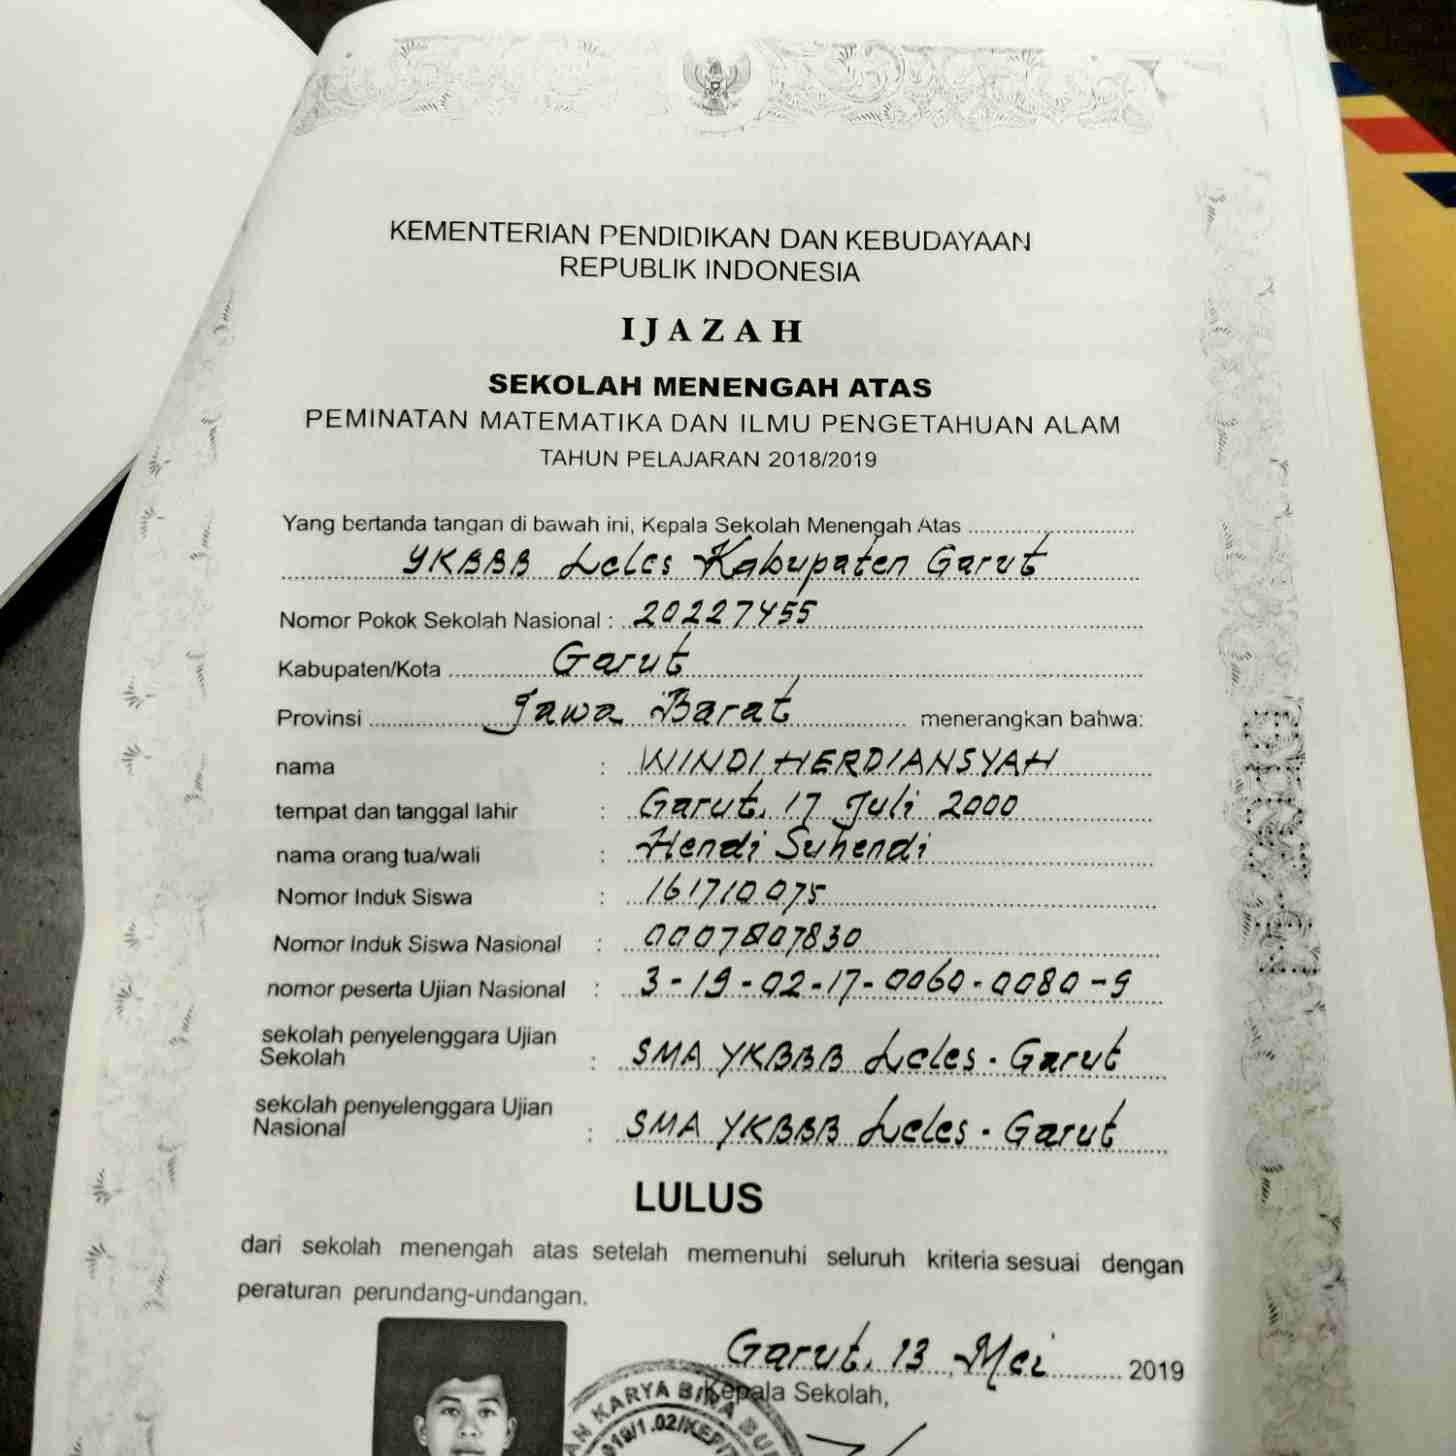 KEMENTERIAN PENDIDIKAN DAN KEBUDAYAAN
REPUBLIK INDONESIA
IJAZAH
SEKOLAH MENENGAH ATAS
PEMINATAN MATEMATIKA DAN ILMU PENGETAHUAN ALAM
TAHUN PELAJARAN 2018/2019
Yang bertanda tangan di bawah ini, Kepala Sekolah Menengah Atas
YKBBB Leles Kabupaten Garut
Nomor Pokok Sekolah Nasional : 20227455
Kabupaten/Kota Garut
Provinsi Jawa Barat menerangkan bahwa:
nama : WINDI HERDIANSYAH
tempat dan tanggal lahir : Garut, 17 Juli 2000
nama orang tua/wali : Hendi Suhendi
Nomor Induk Siswa : 161710075
Nomor Induk Siswa Nasional : 0007807830
nomor peserta Ujian Nasional : 3-19-02-17-0060-0080-9
sekolah penyelenggara Ujian
Sekolah : SMA YKBBB Leles - Garut
sekolah penyelenggara Ujian
Nasional : SMA YKBBB Leles - Garut
LULUS
dari sekolah menengah atas setelah memenuhi seluruh kriteria sesuai dengan
peraturan perundang-undangan.
Garut, 13 Mei 2019
Kepala Sekolah,
KARYA BINA